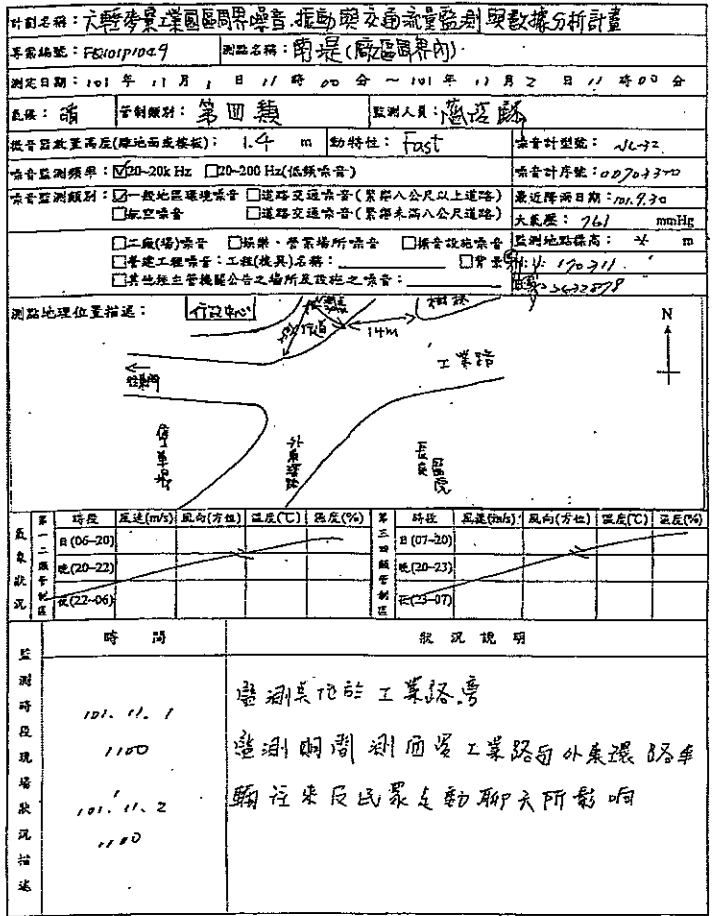 計劃名稱：六輕麥寮工業園區周界噪音、振動與交通流量監測與數據分析計畫
專案編號：FB101P1049 測點名稱：南堤(廠區周界內)
測定日期：101 年 11 月 1 日 11 時 00 分 ～ 101 年 11 月 2 日 11 時 00 分
氣候：晴 管制類別：第四類 監測人員：
拾音器放置高度(離地面或樓板)：1.4 m 動特性：Fast 噪音計型號：NL-32
噪音監測頻率：☑20~20k Hz □20~200 Hz(低頻噪音) 噪音計序號：00703370
噪音監測類別：☑一般地區環境噪音 □道路交通噪音(緊鄰八公尺以上道路) 最近降雨日期：101.9.30
□航空噪音 □道路交通噪音(緊鄰未滿八公尺道路) 大氣壓：761 mmHg
□工廠(場)噪音 □娛樂、營業場所噪音 □擴音設施噪音 監測地點標高： m
□營建工程噪音：工程(機具)名稱： □背景 170311
□其他經主管機關公告之場所及設施之噪音： 2632878
測點地理位置描述：
行政中心
樹林
N
人行道
14m
工業路
往東門
停車場
外東環路
長庚醫院
氣象狀況
第一二類管制區 時段 風速(m/s) 風向(方位) 溫度(℃) 濕度(%) 第三四類管制區 時段 風速(m/s) 風向(方位) 溫度(℃) 濕度(%)
日(06~20) 日(07~20)
晚(20~22) 晚(20~23)
夜(22~06) 夜(23~07)
監測時段現場狀況描述
時 間 狀 況 說 明
101.11.1
1100
101.11.2
1100
監測點位於工業路旁
監測期間測值受工業路與外東環路車
輛往來及民眾走動聊天所影响